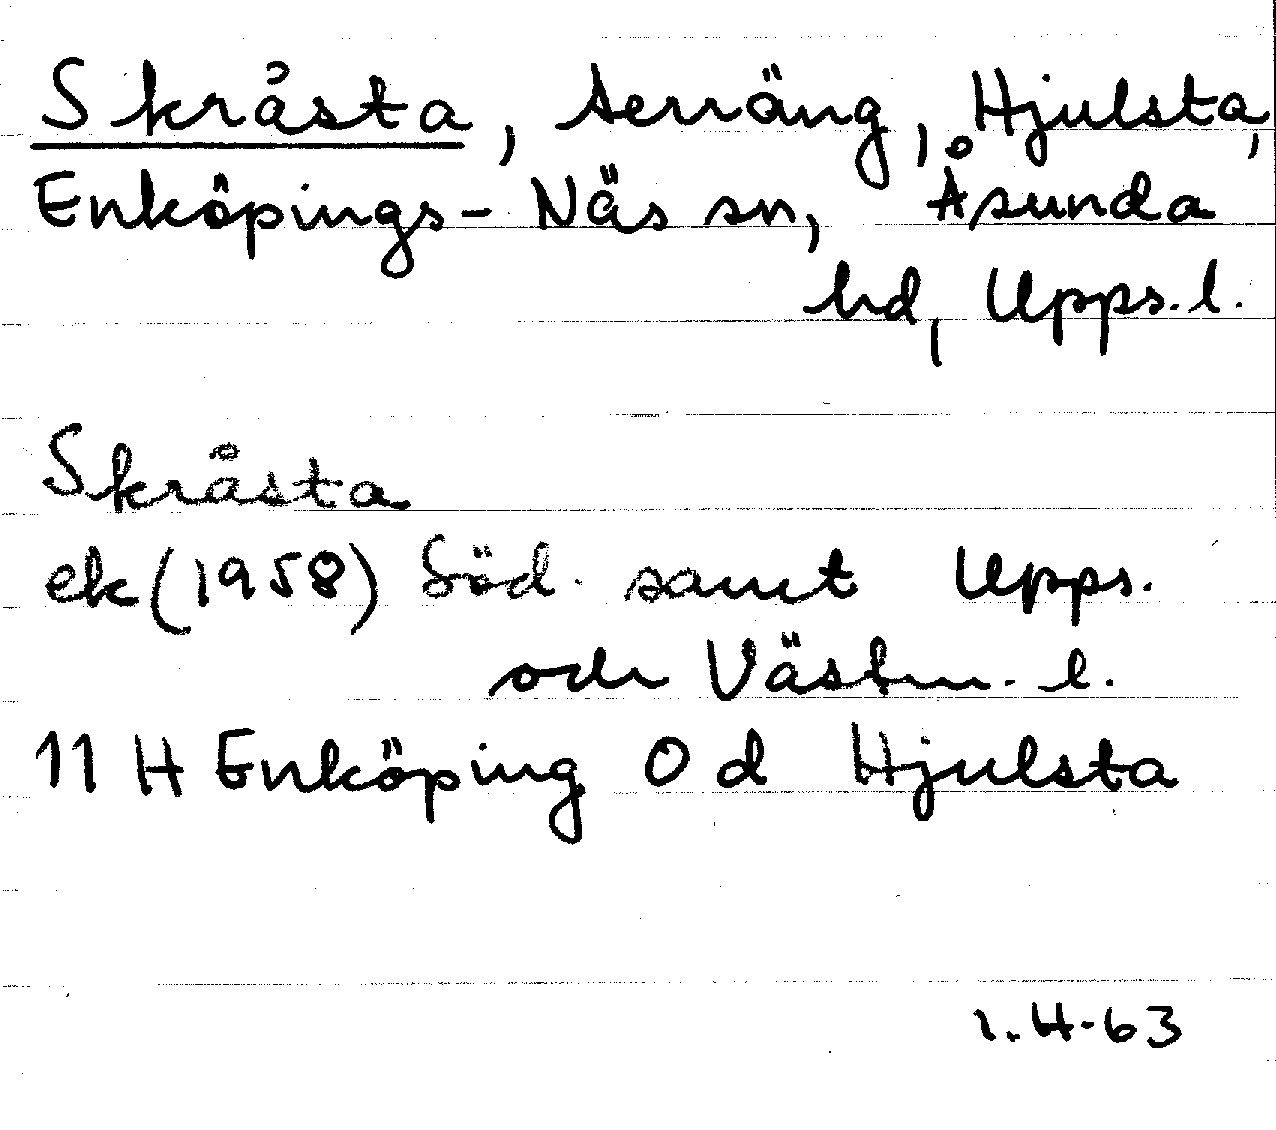 Skråsta, terräng, Hjulsta,
Enköpings-Näs sn, Åsunda
hd, Upps. l.
Skråsta
ek (1958) Söd. samt Upps.
och Västm. l.
11 H Enköping 0 d Hjulsta
1.H-63